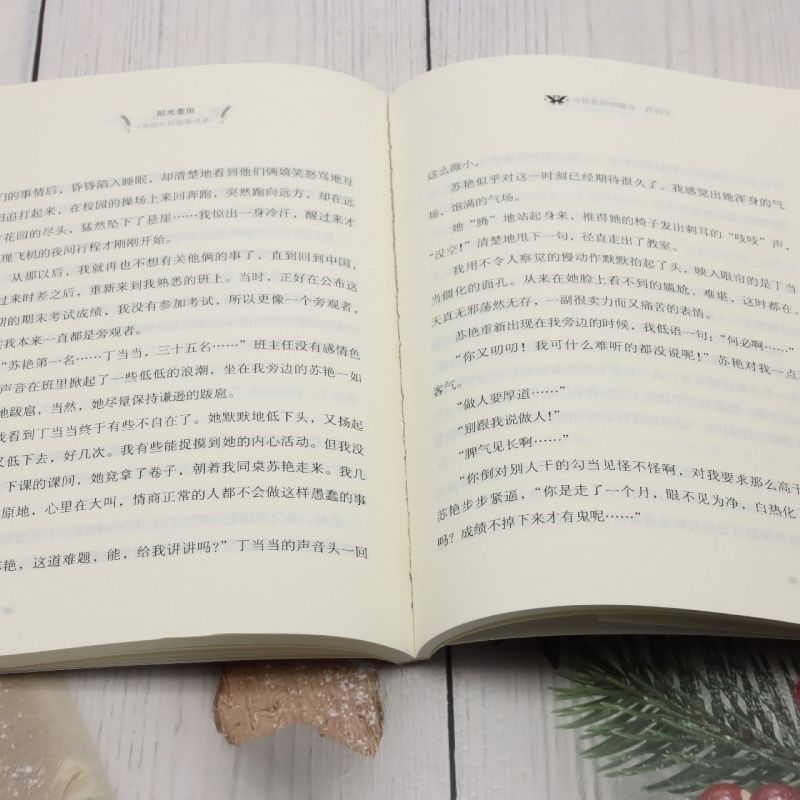 阳光麦田
们的事情后，昏昏陷入睡眠，却清楚地看到他们俩嬉笑怒骂地互
相追打起来，在校园的操场上来回奔跑，突然跑向远方，却在远
花园的尽头，猛然坠下了悬崖……我惊出一身冷汗，醒过来才
现飞机的夜间行程才刚刚开始。
从那以后，我就再也不想有关他俩的事了，直到回到中国，
过来时差之后，重新来到我熟悉的班上。当时，正好在公布这
期的期末考试成绩，我没有参加考试，所以更像一个旁观者，
我本来一直都是旁观者。
“苏艳第一名……丁当当，三十五名……”班主任没有感情色
声音在班里掀起了一些低低的浪潮，坐在我旁边的苏艳一如
地跋扈，当然，她尽量保持谦逊的跋扈。
我看到丁当当终于有些不自在了。她默默地低下头，又扬起
又低下去，好几次。我有些能捉摸到她的内心活动。但我没
下课的课间，她竟拿了卷子，朝着我同桌苏艳走来。我几
原地，心里在大叫，情商正常的人都不会做这样愚蠢的事
艳，这道难题，能，给我讲讲吗？”丁当当的声音头一回
这么微小。
苏艳似乎对这一时刻已经期待很久了。我感觉出她浑身的气
场，饱满的气场。
她“腾”地站起身来，推得她的椅子发出刺耳的“吱吱”声，
“没空！”清楚地甩下一句，径直走出了教室。
我用不令人察觉的慢动作默默抬起了头，映入眼帘的是丁当
当僵化的面孔。从来在她脸上看不到的尴尬、难堪，这时都在。
天真无邪荡然无存，一副很卖力而又痛苦的表情。
苏艳重新出现在我旁边的时候，我低语一句：“何必啊……”
“你又叨叨！我可什么难听的都没说呢！”苏艳对我一点不
客气。
“做人要厚道……”
“别跟我说做人！”
“脾气见长啊……”
“你倒对别人干的勾当见怪不怪啊，对我要求那么高干
苏艳步步紧逼，“你是走了一个月，眼不见为净，白热化了
吗？成绩不掉下来才有鬼呢……”